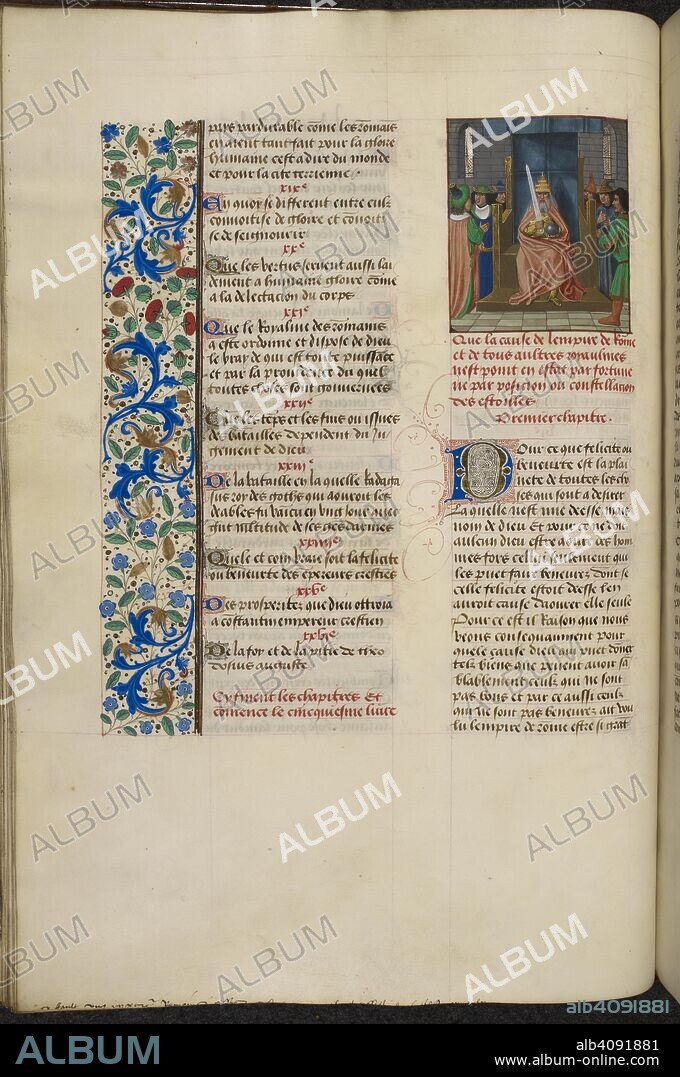 pays pardurable come les romais
eussent tant fait pour la gloire
humaine cest adire du monde
et pour la cite terrienne.
xixe
En quoy se different entre eulx
convoitise de gloire et convoiti
se de seignourir
xxe
Que les vertus servent aussi lai
dement a humaine gloire come
a la delectacion du corps
xxie
Que le Royalme des rommains
a este ordonne et dispose de dieu
le vray de qui est toute puissace
et par la providence du quel
toutes choses sont gouvernees
xxiie
Que les teps et les fins ou issues
des batailles dependent du Ju
gement de dieu
xxiiie
De la bataille en la quelle
sus roy des goths qui aouroit les
deables fu vaicu en ung Jour avec
multitude de ses gesdarmes
xxiiiie
Quele et com vraie soit la felicite
ou beneurte des epereurs crestiens
xxve
Des prosperitez que dieu ottroia
a costantin empereur crestien
xxvie
De la foy et de la pitie de theo
dosius auguste
Cy finent les chapitres Et
comence le cincquiesme livre
Que la cause de lempire de Rome
et de tous aultres royaulmes
nest point en estre par fortune
ne par posicion ou constellacion
des estoilles
Premier chapitre.
Pour ce que felicite ou
beneurte est la plai
nete de toutes les cho
ses qui sont a desirer
La quelle nest mie deesse mais
don de dieu Et pour ce
aulcun dieu estre aoure des hom
mes fors celui seulement qui
les puet faire beneurez dont se
celle felicite estoit deesse len
auroit cause daourer elle seule
Pour ce est il Raison que nous
veons consequamment pour
quele cause dieu qui puet donner
telz biens que peuent avoir sa
blablement ceulx qui ne sont
pas bons et par ce aussi ceulx
qui ne sont pas beneurez ait vou
lu lempire de rome estre si grat
ALBUM
alb4091881
ALBUM
alb4091881
www.album-online.com